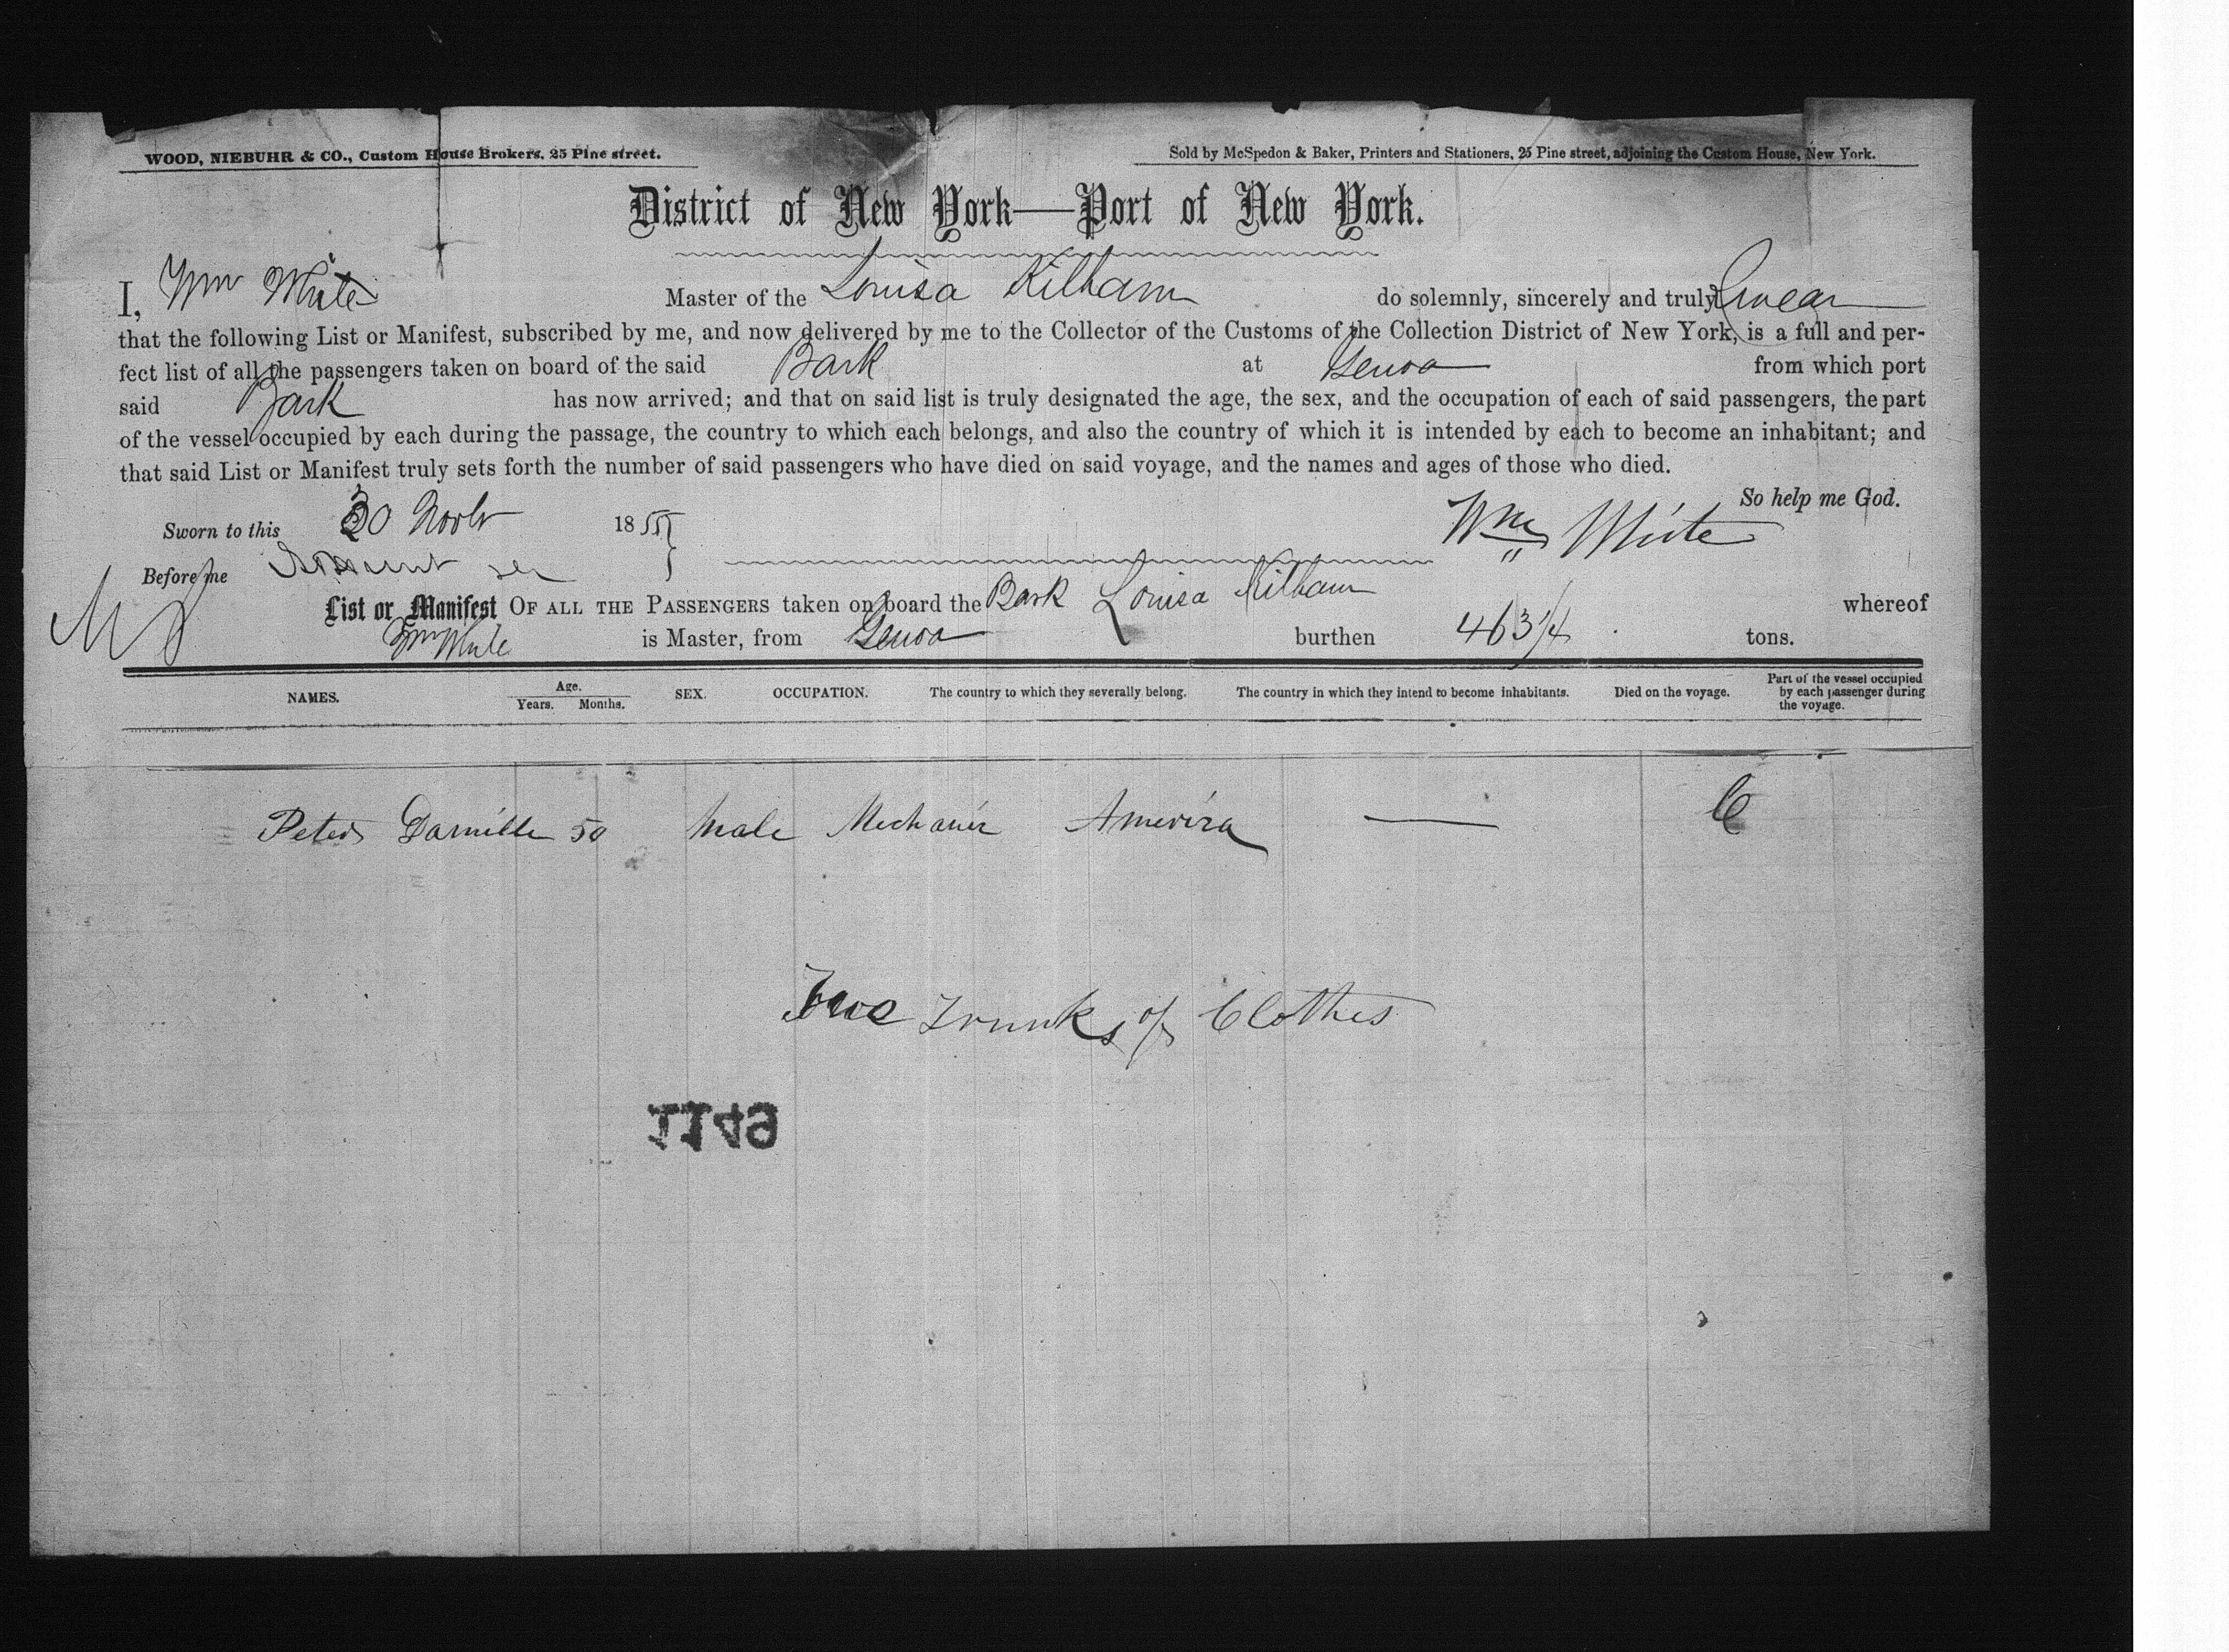 WOOD, NIEBUHR & CO., Custom House Brokers, 25 Pine street.
Sold by McSpedon & Baker, Printers and Stationers, 25 Pine street, adjoining the Custom House, New York.
District of New York—Port of New York.
I, Wm White Master of the Louisa Kilham do solemnly, sincerely and truly swear
that the following List or Manifest, subscribed by me, and now delivered by me to the Collector of the Customs of the Collection District of New York, is a full and per-
fect list of all the passengers taken on board of the said Bark at Genoa from which port
said Bark has now arrived; and that on said list is truly designated the age, the sex, and the occupation of each of said passengers, the part
of the vessel occupied by each during the passage, the country to which each belongs, and also the country of which it is intended by each to become an inhabitant; and
that said List or Manifest truly sets forth the number of said passengers who have died on said voyage, and the names and ages of those who died.
So help me God.
Sworn to this 30 Novbr 1855 Wm White
Before me
List or Manifest OF ALL THE PASSENGERS taken on board the Bark Louisa Kilham whereof
Wm White is Master, from Genoa burthen 463 1/4 tons.
NAMES. Age. Years. Months. SEX. OCCUPATION. The country to which they severally belong. The country in which they intend to become inhabitants. Died on the voyage. Part of the vessel occupied by each passenger during the voyage.
Peter 50 Male Mechanic America — C
Two Trunks of Clothes
1149